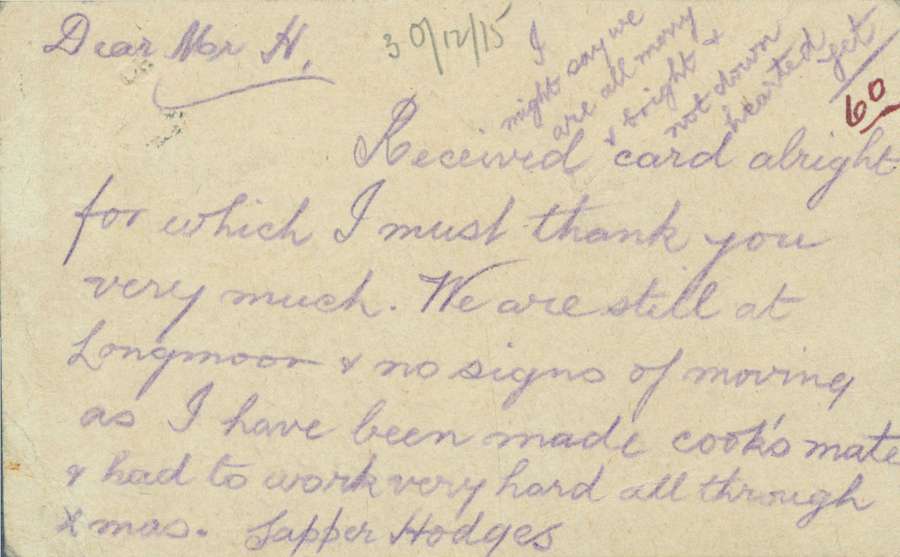 Dear Mr H.
30/12/15
I
might say we
are all merry
& bright &
not down
hearted yet
60
Received card alright
for which I must thank you
very much. We are still at
Longmoor & no signs of moving
as I have been made cook's mate
& had to work very hard all through
Xmas. Sapper Hodges